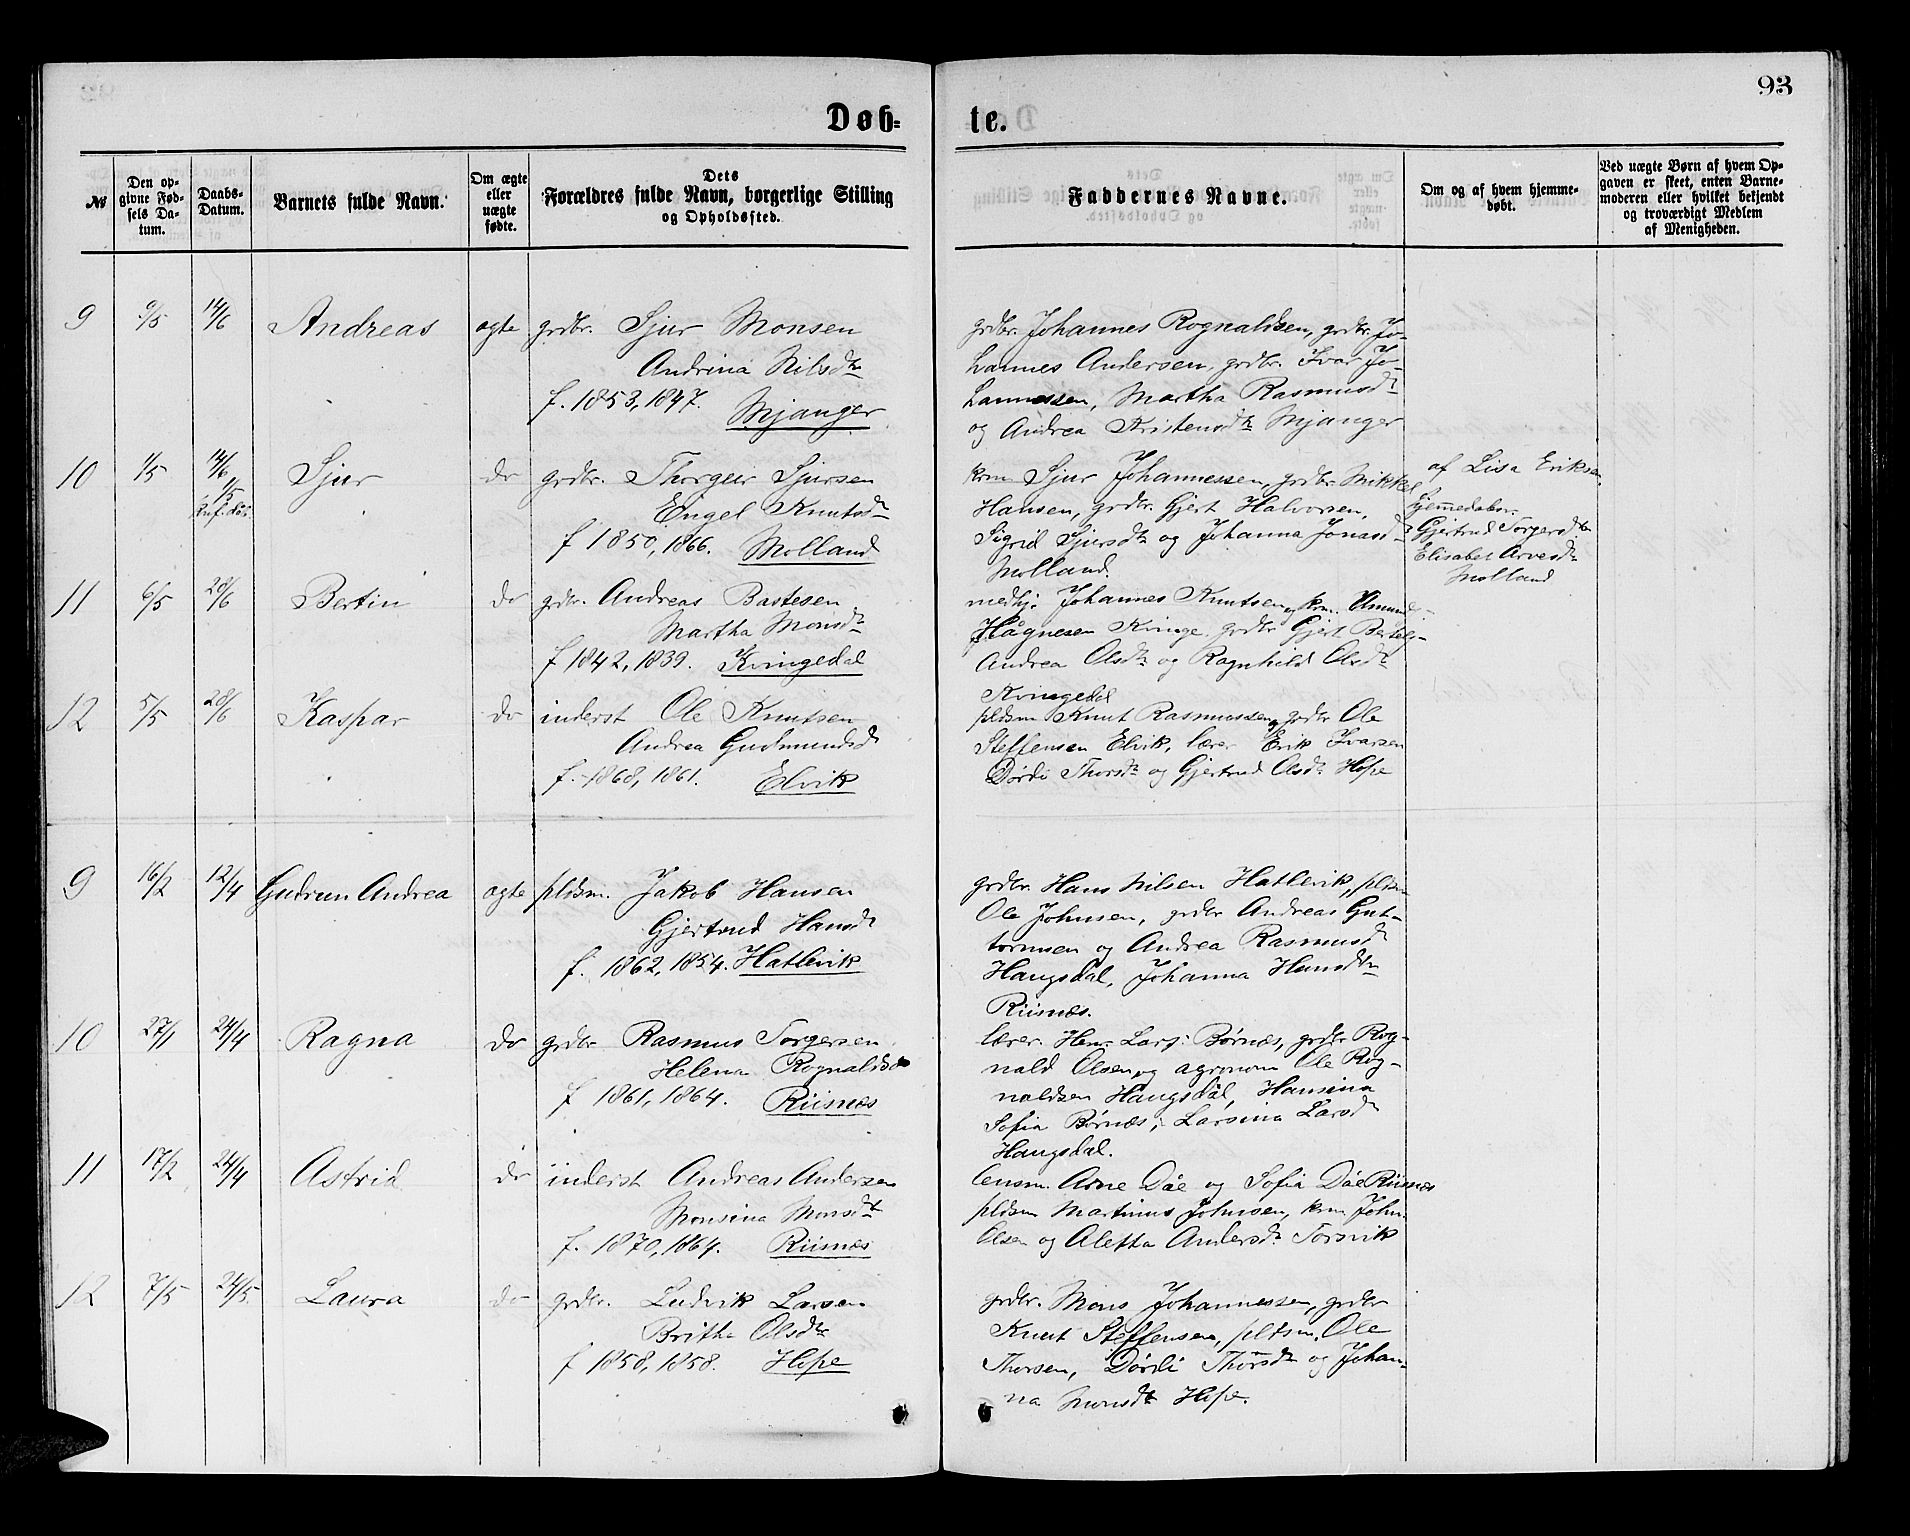 93
Døb-
te.
№
Den op-
givne Fød-
sels Da-
tum.
Daabs-
Datum.
Barnets fulde Navn.
Om ægte
eller
uægte
fødte.
Dets
Forældres fulde Navn, borgerlige Stilling
og Opholdssted.
Faddernes Navne.
Om og af hvem hjemme-
døbt.
Ved uægte Børn af hvem Op-
gaven er skeet, enten Barne-
moderen eller hvilket bekjendt
og troværdigt Medlem
af Menigheden.
9 9/5 14/6 Andreas ægte grdbr. Sjur Monsen
Andrina Nilsdtr
f. 1853, 1847. Mjanger
grdbr. Johannes Rognaldsen, grdbr. Jo-
hannes Andersen, grdbr. Ivar Jo-
hannessen, Martha Rasmusdtr
og Andrea Kristensdtr Mjanger
10 1/5 14/6 Sjur do grdbr. Thorgeir Sjursen
1/5
Engel Knutsdtr
f 1850, 1866. Molland
krm Sjur Johannessen, grdbr. Mikkel
Hansen, grdbr. Gjert Halvorsen,
Sigrid Sjursdtr og Johanna Jonasdtr
Molland.
af Lisa Eriksen,
hjemmedøbt.
Gjertrud Torgersdtr
Elisabet Arvesdtr
Molland
11 6/5 28/6 Bertin do grdbr. Andreas Bastesen
Martha Monsdtr
f 1842, 1839. Kvingedal
medhj. Johannes Knutsen, og krm. Amund
Hågnesen Kvinge, grdbr. Gjert Bertels-
Andrea Olsdtr og Ragnhild Olsdtr
Kvingedal
12 5/5 28/6 Kaspar do inderst Ole Knutsen
Andrea Gudmundsdtr
f. 1868, 1861. Elvik
pldsm Knut Rasmussen, og grdbr Ole
Steffensen Elvik, lærer Erik Ivarsen
Dørdi Thorsdtr og Gjertrud Olsdtr Hope
9 16/2 12/4 Gudrun Andrea ægte pldsm. Jakob Hansen
Gjertrud Hansdtr
f. 1862, 1854. Hatlevik
grdbr. Hans Nilsen Hatlevik, pldsm
Ole Johnsen, grdbr Andreas Gut-
tormsen og Andrea Rasmusdtr
Haugsdal, Johanna Hansdtr
Riisnæs.
10 27/1 24/4 Ragna do grdbr Rasmus Torgersen
Helena Rognaldsdtr
f 1861, 1864. Riisnæs
lærer Hen. Lars: Børnæs, grdbr Rog-
nald Olsen og agronom Ole Rog-
naldsen Haugsdal, Hansina
Sofia Børnæs, Larsina Larsdtr
Haugsdal.
11 17/2 24/4 Astrid do inderst Andreas Andersen
Monsina Monsdtr
f. 1870, 1864. Riisnæs
lensm. Arne Dåe og Sofia Dåe Riisnæs
pldsm Martinus Johnsen, krm. John
Olsen og Aletha Andersdtr Torsvik
12 7/5 24/5. Laura do grdbr. Ludvik Larsen
Britha Olsdtr
f 1858, 1858. Hope
grdbr. Mons Johannessen, grdbr
Knut Steffensen, pldsm. Ole
Thorsen, Dørdi Thorsdtr og Johan-
na Monsdtr Hope.